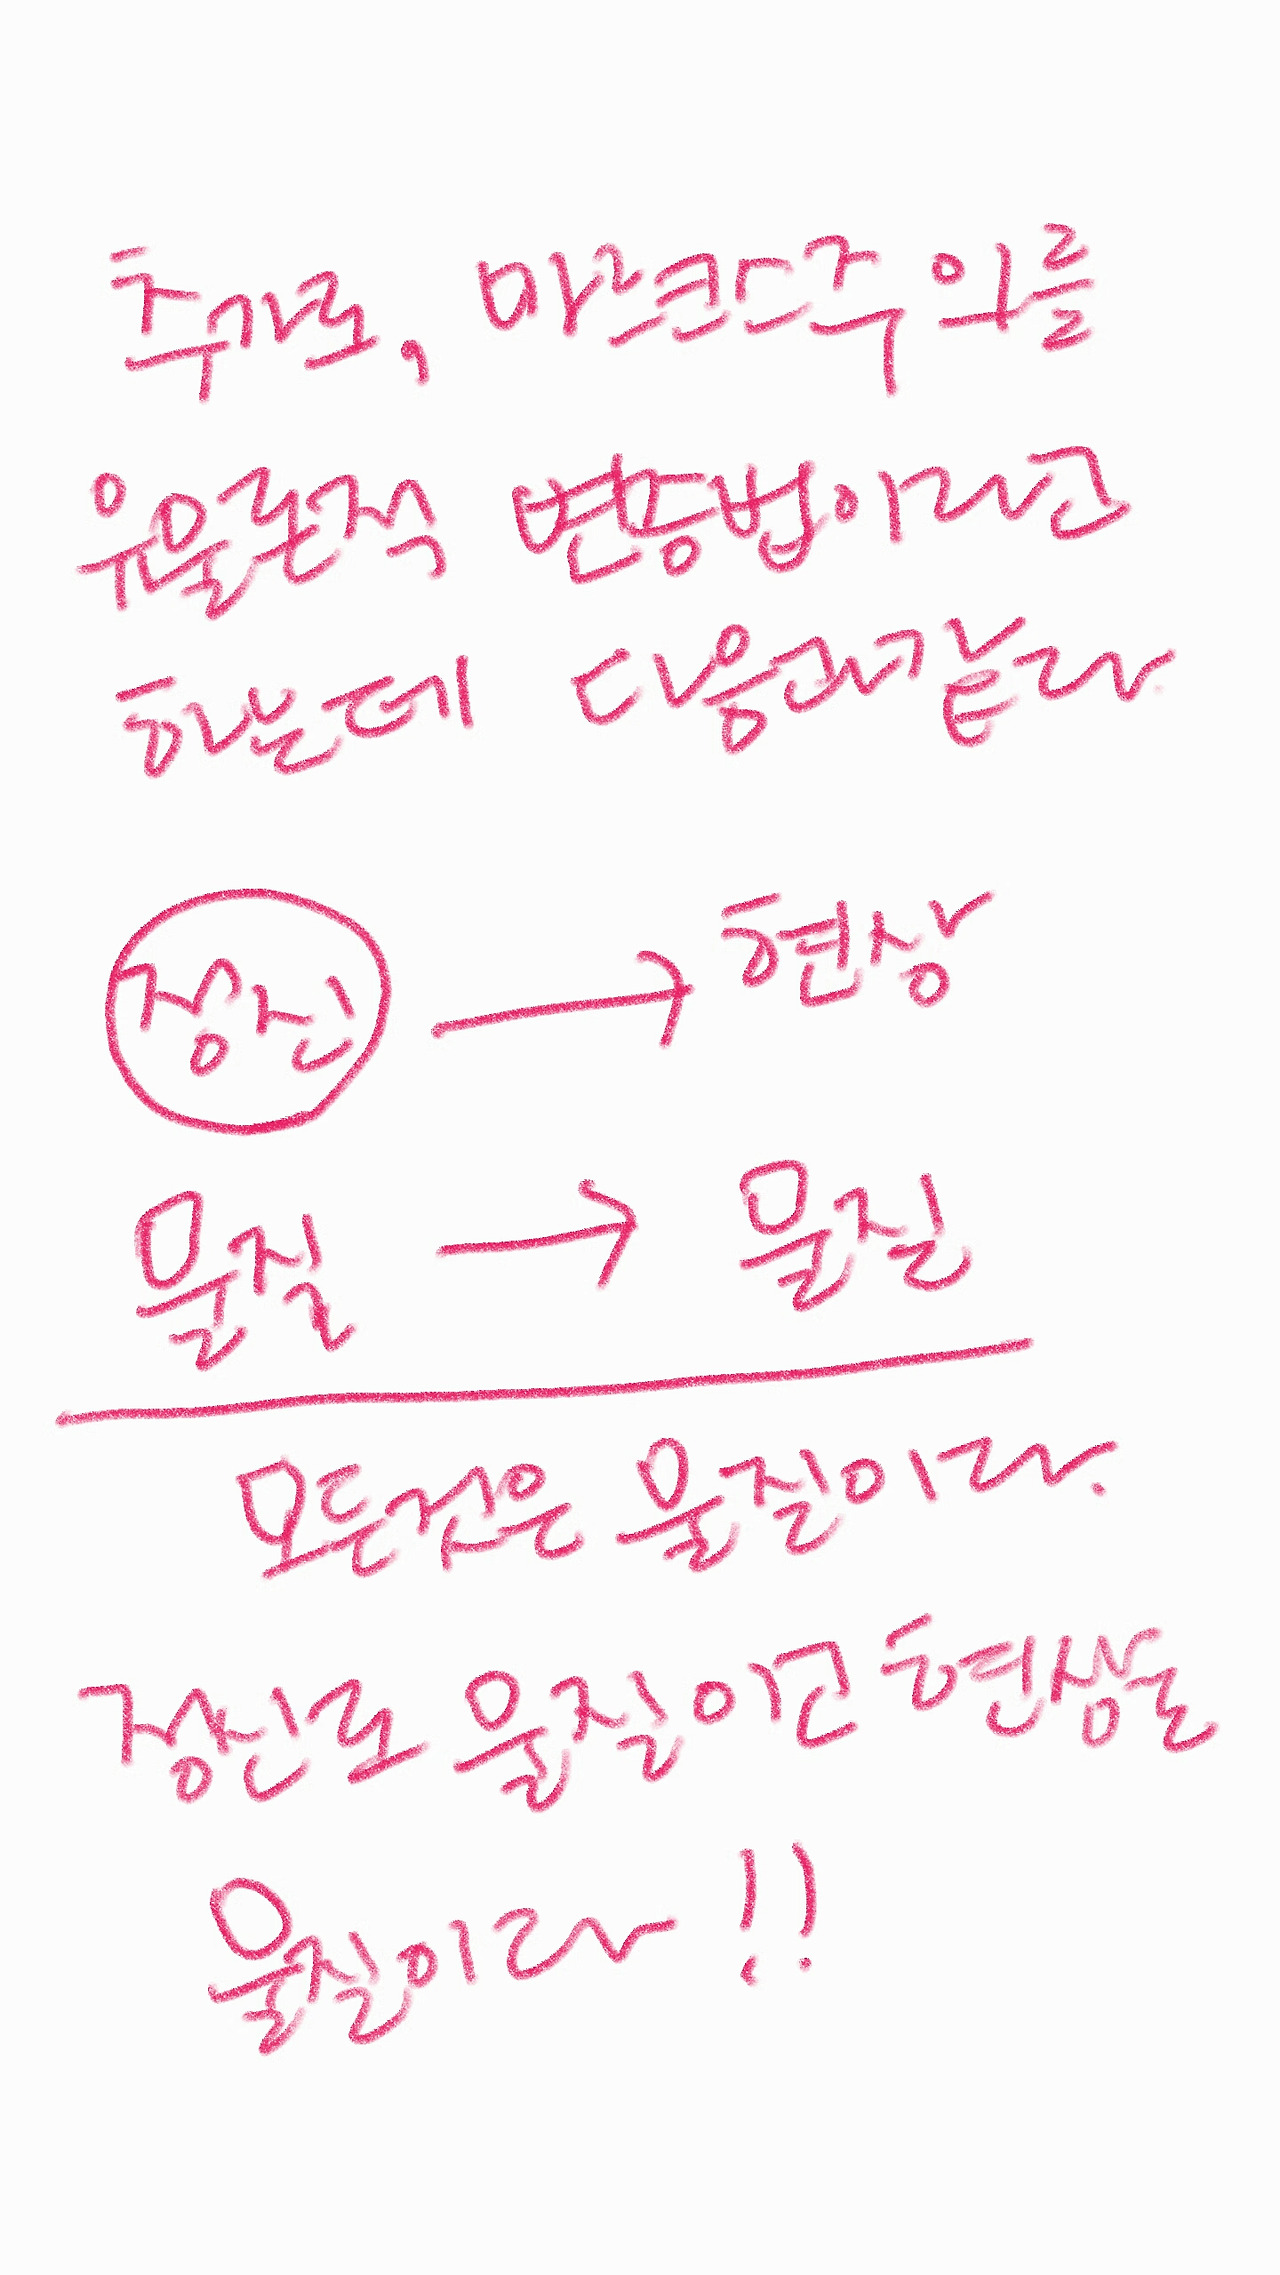 추가로, 마르크스주의를
유물론적 변증법이라고
하는데 다음과 같다
정신 → 현상
물질 → 물질
모든것은 물질이다.
정신도 물질이고 현상도
물질이다!!